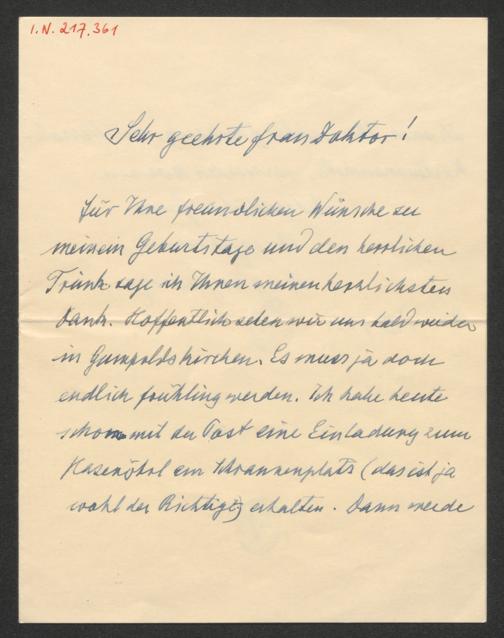 I.N. 217.361
Sehr geehrte Frau Doktor!
Für Ihre freundlichen Wünsche zu
meinem Geburtstage und den herrlichen
Trunk sage ich Ihnen meinen herzlichsten
Dank. Hoffentlich sehen wir uns bald wieder
in Gumpoldskirchen. Es muss ja doch
endlich Frühling werden. Ich habe heute
schon mit der Post eine Einladung zum
am Schrannenplatz (das ist ja
wohl der Richtige) erhalten. Dann werde